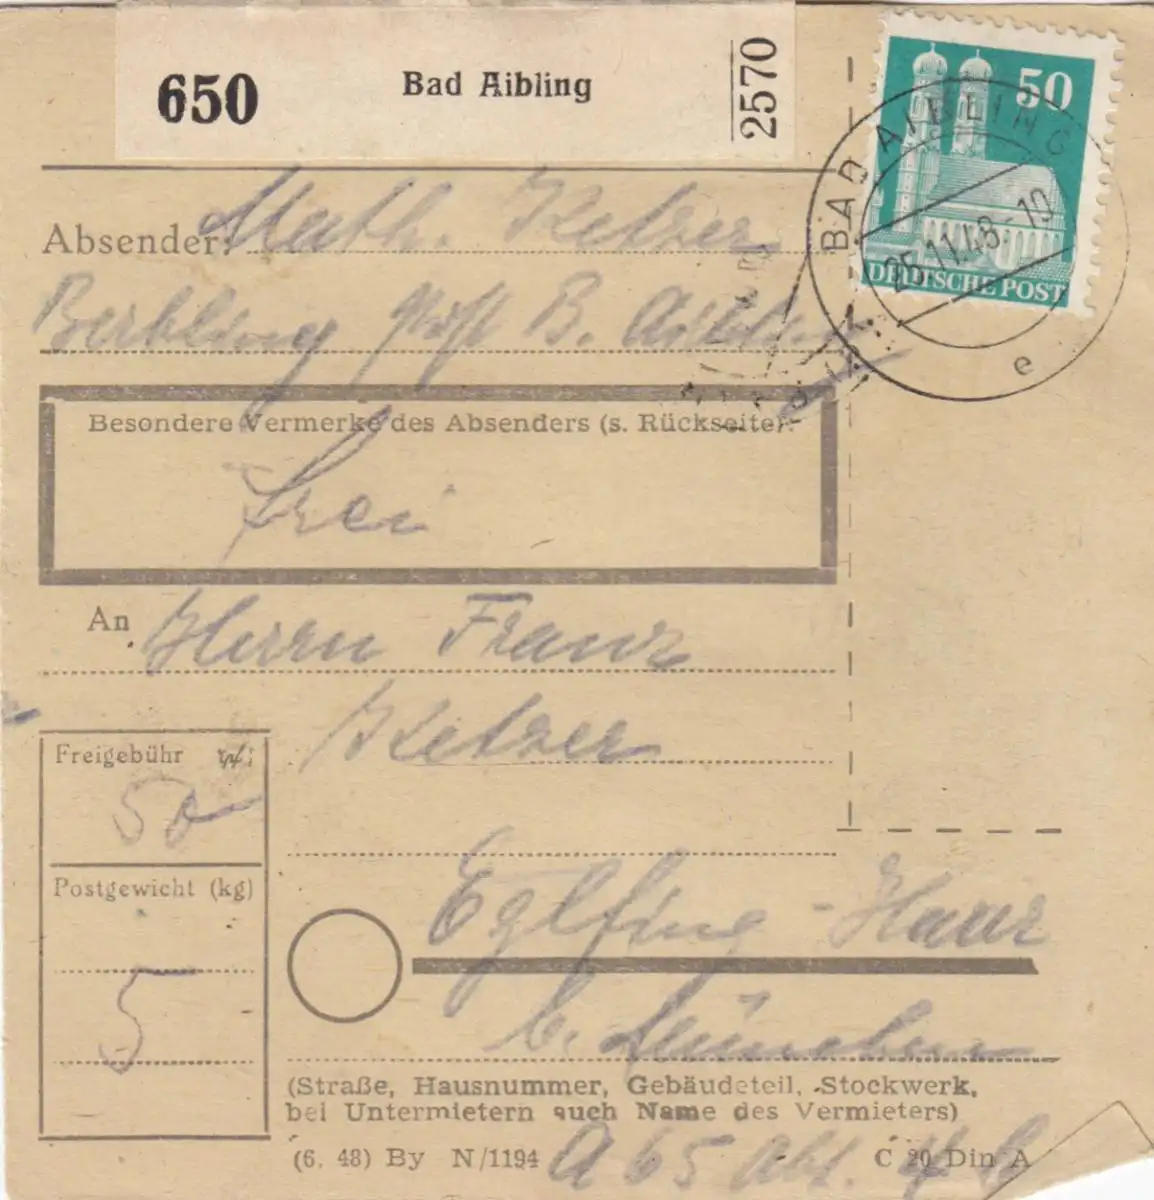 650 Bad Aibling 2570
50
DEUTSCHE POST
BAD AIBLING
25.11.48.-10
e
Absender: Math. Ketzer
Berbling Post B. Aibling
Besondere Vermerke des Absenders (s. Rückseite):
frei
An Herrn Franz
Ketzer
Freigebühr
50
Postgewicht (kg)
5
Eglfing - Haar
b. München
(Straße, Hausnummer, Gebäudeteil, Stockwerk,
bei Untermietern auch Name des Vermieters)
(6. 48) By N/1194 C 20 Din A
A 65 Abt.